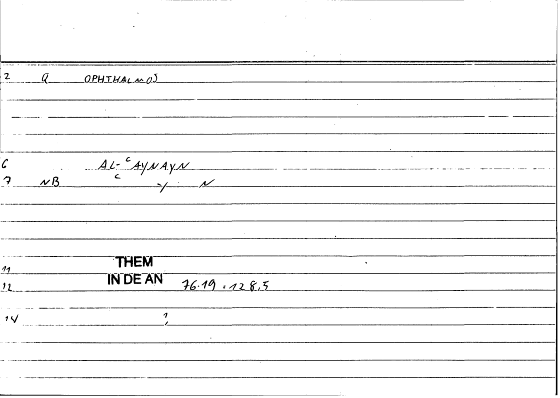 2 Q OPHTHALMOS
6 AL-ᶜAYNAYN
7 NB ᶜ -y N
11 THEM
12 IN DE AN 76.19.128.5
14 ?